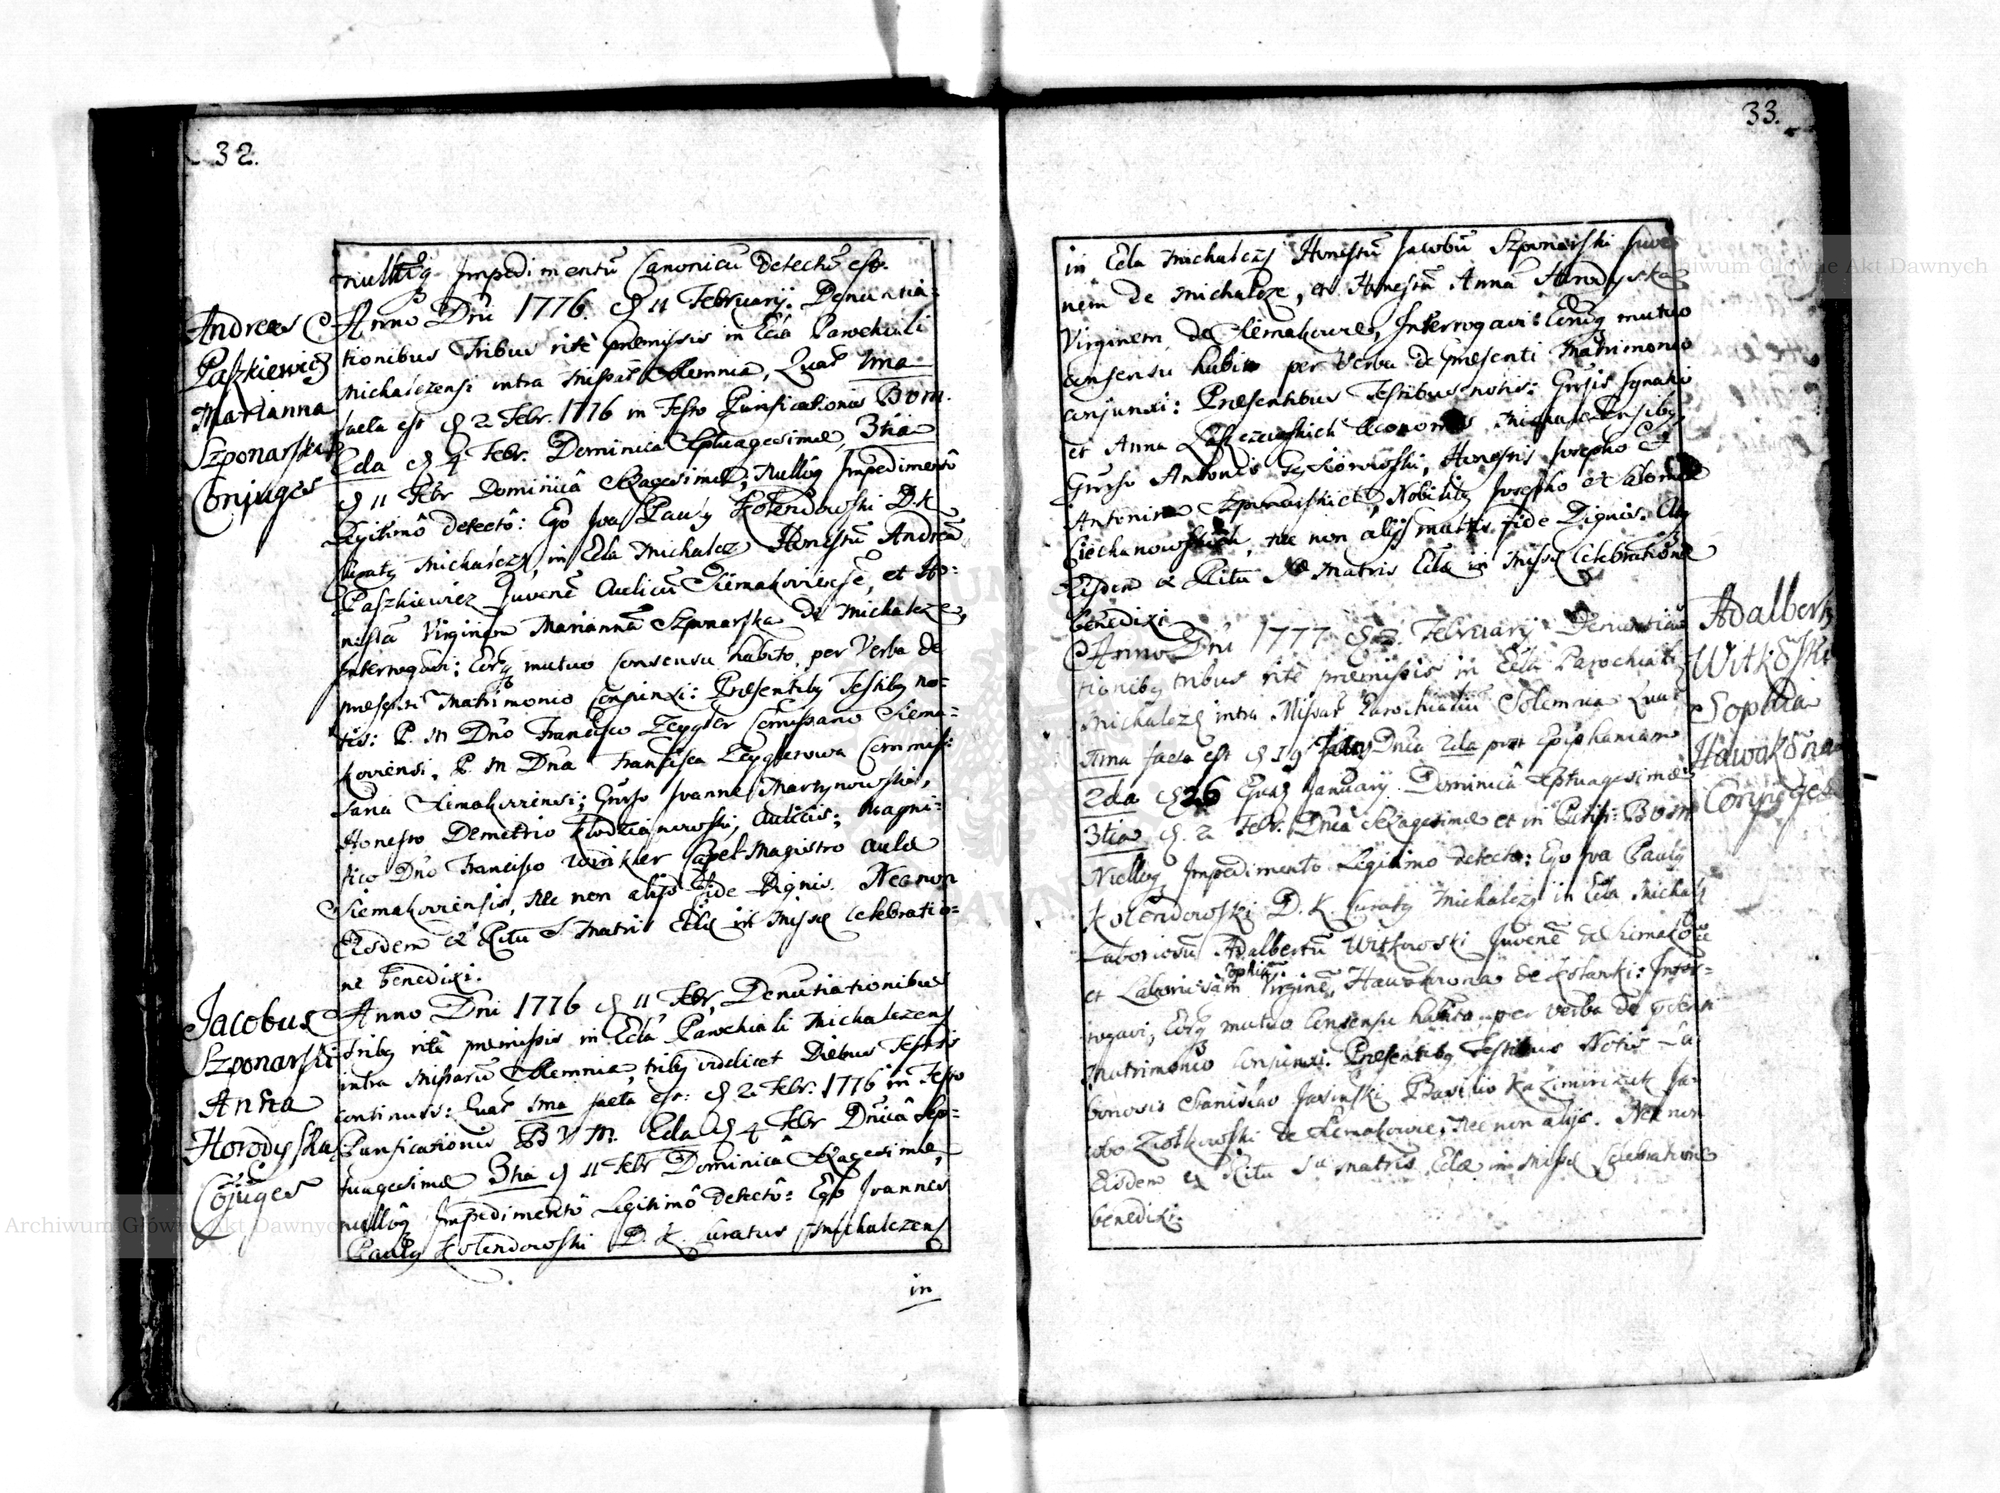 32.
nullumq Impedimentū Canonicū Detectū est.
Andreas
Paszkiewicz
Marianna
Szponarska
Conjuges
Anno Dni 1776. d 11 February. Denuntia=
tionibus Tribus ritè præmissis in Ecla Parochiali
Michalczensi intra Missar Solemnia, Quar 1ma
facta est d 2 Febr. 1776 in Festo Purificationis BVM.
2da d 4 Febr. Dominica Septuagesimæ, 3tia
d 11 Febr Dominicâ Sexagesimæ; Nullôq Impedimentô
Legitimô detectô: Ego Joa Pauly Kolendowski D.K
Curaty Michalcz, in Ecla Michalcz Honestū Andreā
Paszkiewicz Juvenē Aulicū Siemakoviensē, et Ho=
nestā Virginem Mariannā Szponarska de Michalcze,
Interrogavi: Eorq mutuo Consensu habito, per Verba de
præsenti Matrimonio Conjunxi: Præsentiby Testiby no=
tis: P. M Dno Francisco Zeygler Comissario Siema=
koviensi, P. M Dna Francisca Zeyglerowa Commis=
saria Siemakoviensi; Gnrso Joanne Martynowski,
Honesto Demetrio Kłodzianowski, Aulicis; Magni=
fico Dno Francisco Winkler Capel-Magistro Aulæ
Siemakoviensis, Nec non alijs Fide Dignis. Necnon
Eisdem ex Ritu S. Matris Eclæ in Missæ Celebratio=
ne benedixi.
Jacobus
Szponarski
Anna
Horodyska
Cōjuges
Anno Dni 1776 d 11 Febr, Denutiationibus
triby ritè præmissis in Ecla Parochiali Michalczens
intra Missarū Solemnia, triby videlicet Diebus Festis
continuis: Quar 1ma facta est: d 2 Febr. 1776 in Festo
Purificationis BVM. 2da d 4 Febr Dnicâ Sep=
tuagesimæ 3tia d 11 Febr Dominicâ Sexagesimæ,
nullôq Impedimentô Legitimô detectô: Ego Joannes
Pauly Kolendowski D. K. Curatus Michalczens
in
33.
in Ecla Michalczs Honestū Jacobū Szponarski Juve
nem de Michalcze, et Honestā Annā Horodyska
Virginem de Siemakowce, Interrogavi: Eorūq mutuo
consensu habito per Verba de præsenti Matrimonio
conjunxi: Præsentibus Testibus notis: Gnrsis Ignatio
et Anna
Gnrso Antonio Honestis Josepho et
Antonina Nobiliby Josepho et Salomea
nec non alijs multis fide Dignis. Atq
Eisdem ex Ritu Sæ Matris Eclæ in Missæ Celebratione
benedixi.
Anno Dni 1777 d 2. February Denuntia
tioniby tribus ritè præmissis in Ecla Parochiali
Michalczs intra Missar Parochialiū Solemnia Quar
1ma facta est d 19 Dnica 2da post Epiphaniam
2da d 26 January Dominicâ Septuagesimæ
3tia d. 2 Febr. Dnicâ Sexagesimæ et in Purif: BVM
Nulloq Impedimento Legitimo detecto: Ego Joa Pauly
Kolendowski D. K. Curaty Michalczs in Ecla Michalcz
Laboriosū Adalbertū Witkowski Juvenē de Siemakowce
et Laboriosam Sophiā Virginē, Hawakowna de Kolanki: Inter=
rogavi, Eorq mutuo Consensu habito, per verba de præsenti
Matrimonio Conjunxi. Præsentiby Testibus Notis La=
boriosis Stanislao Jasinski Basilio Kazimirczuk Ja=
cobo Ziołkowski de Siemakowce, Nec non alijs. Nec non
Eisdem ex Ritu Sæ Matris Eclæ in Missæ Celebratione
benedixi.
Adalberty
Witkowski
Sophia
Hawakōna
Conjuges
Archiwum Główne Akt Dawnych
Archiwum Główne Akt Dawnych